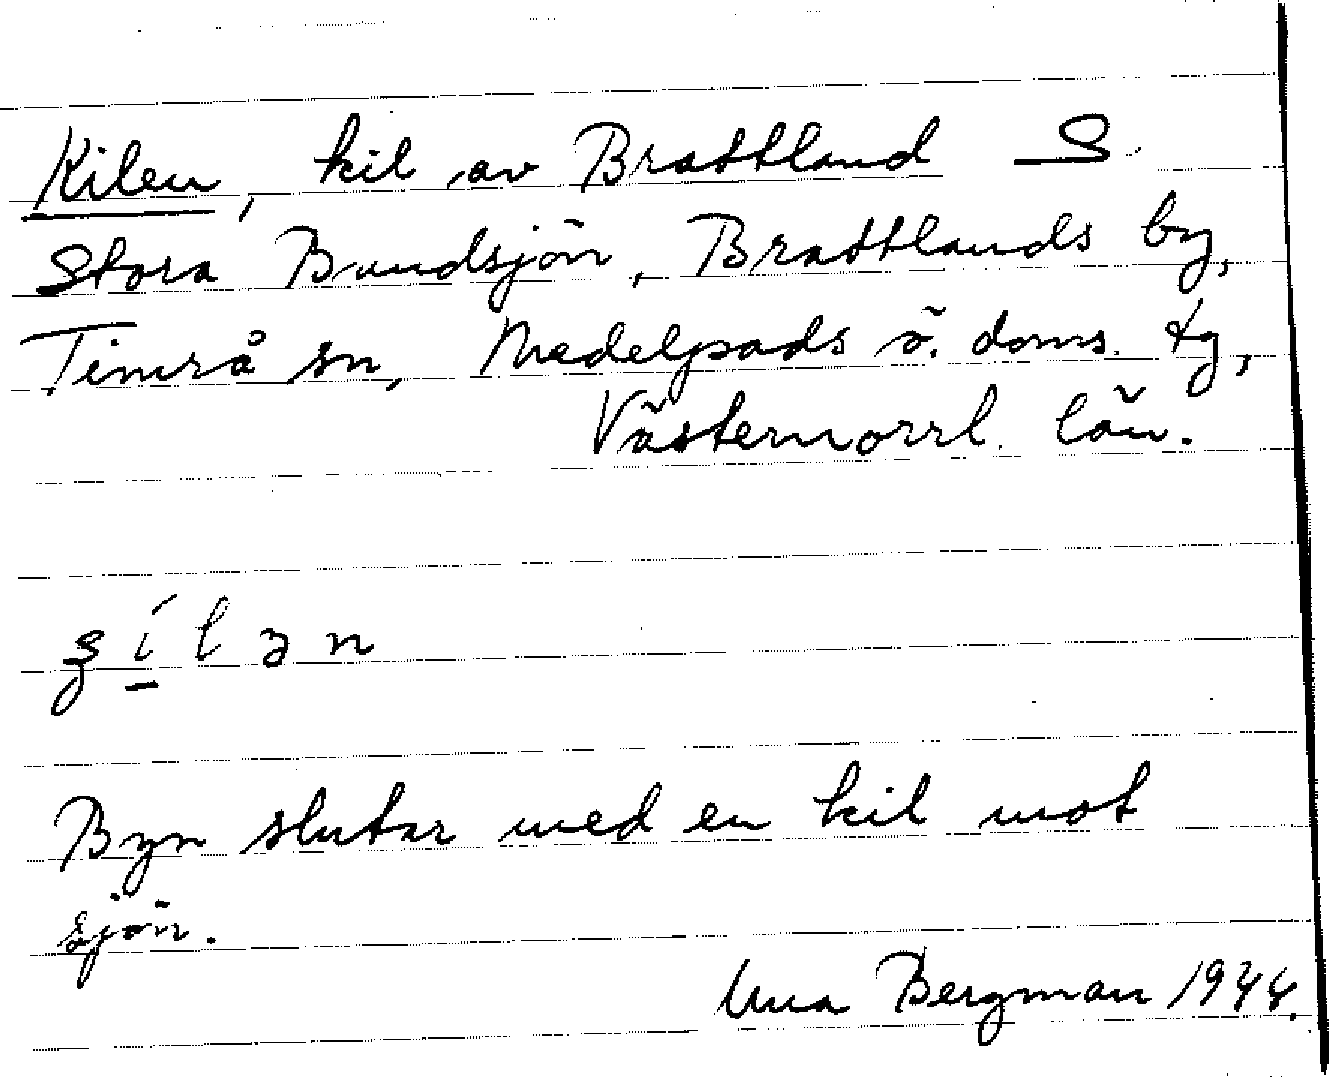 Kilen, kil av Brattland S
Stora Bandsjön, Brattlands by,
Timrå sn, Medelpads ö. doms. tg,
Västernorrl. län.
ʒílən
Byn slutar med en kil mot
sjön.
Una Bergman 1944.